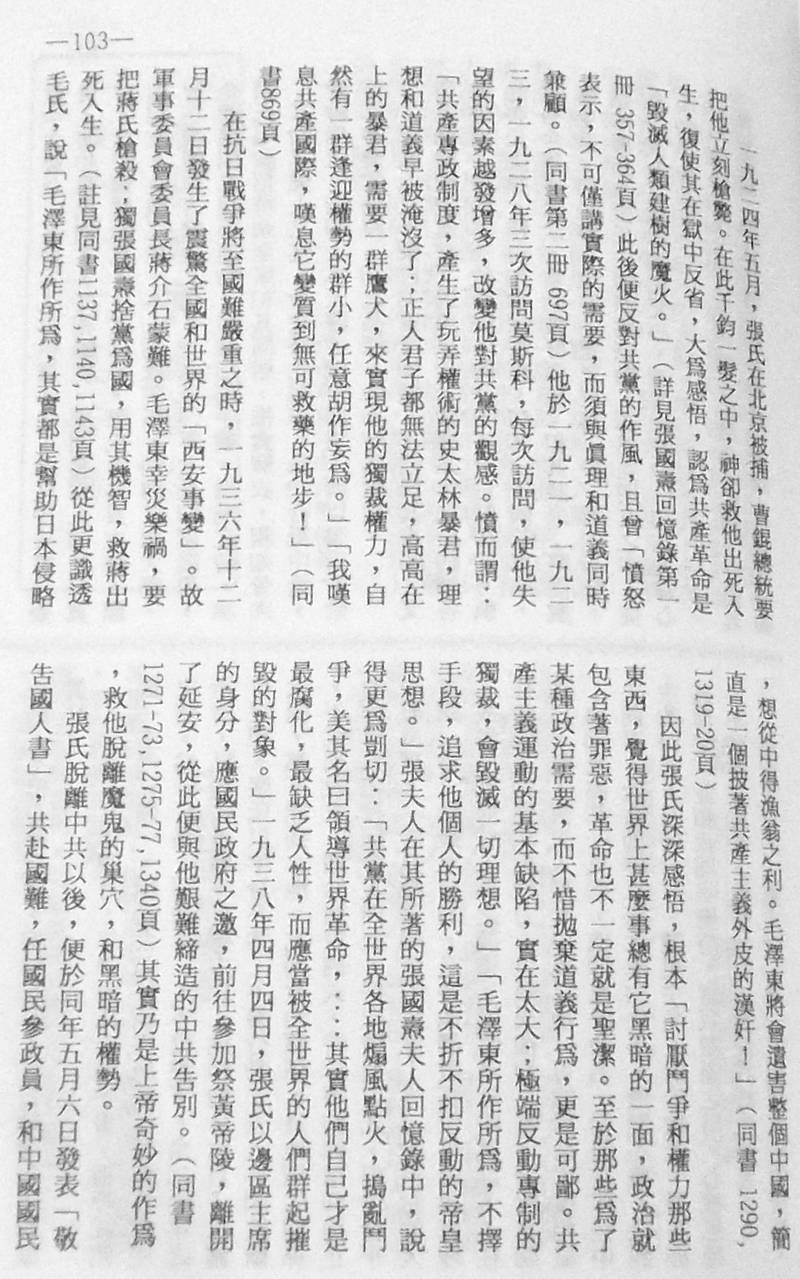 —103—
一九二四年五月，張氏在北京被捕，曹錕總統要
把他立刻槍斃。在此千鈞一髮之中，神卻救他出死入
生，復使其在獄中反省，大爲感悟，認爲共產革命是
「毀滅人類建樹的魔火。」（詳見張國燾回憶錄第一
冊 357-364頁）此後便反對共黨的作風，且曾「憤怒
表示，不可僅講實際的需要，而須與眞理和道義同時
兼顧。（同書第二冊 697頁）他於一九二一，一九二
三，一九二八年三次訪問莫斯科，每次訪問，使他失
望的因素越發增多，改變他對共黨的觀感。憤而謂：
「共產專政制度，產生了玩弄權術的史太林暴君，理
想和道義早被淹沒了；正人君子都無法立足，高高在
上的暴君，需要一群鷹犬，來實現他的獨裁權力，自
然有一群逢迎權勢的群小，任意胡作妄爲。」「我嘆
息共產國際，嘆息它變質到無可救藥的地步！」（同
書869頁）
在抗日戰爭將至國難嚴重之時，一九三六年十二
月十二日發生了震驚全國和世界的「西安事變」。故
軍事委員會委員長蔣介石蒙難。毛澤東幸災樂禍，要
把蔣氏槍殺；獨張國燾捨黨爲國，用其機智，救蔣出
死入生。（註見同書1137,1140,1143頁）從此更識透
毛氏，說「毛澤東所作所爲，其實都是幫助日本侵略
，想從中得漁翁之利。毛澤東將會遺害整個中國，簡
直是一個披著共產主義外皮的漢奸！」（同書 1290,
1319-20頁）
因此張氏深深感悟，根本「討厭鬥爭和權力那些
東西，覺得世界上甚麼事總有它黑暗的一面，政治就
包含著罪惡，革命也不一定就是聖潔。至於那些爲了
某種政治需要，而不惜拋棄道義行爲，更是可鄙。共
產主義運動的基本缺陷，實在太大；極端反動專制的
獨裁，會毀滅一切理想。」「毛澤東所作所爲，不擇
手段，追求他個人的勝利，這是不折不扣反動的帝皇
思想。」張夫人在其所著的張國燾夫人回憶錄中，說
得更爲剴切：「共黨在全世界各地煽風點火，搗亂鬥
爭，美其名曰領導世界革命，…其實他們自己才是
最腐化，最缺乏人性，而應當被全世界的人們群起摧
毀的對象。」一九三八年四月四日，張氏以邊區主席
的身分，應國民政府之邀，前往參加祭黃帝陵，離開
了延安，從此便與他艱難締造的中共告別。（同書
1271-73,1275-77,1340頁）其實乃是上帝奇妙的作爲
，救他脫離魔鬼的巢穴，和黑暗的權勢。
張氏脫離中共以後，便於同年五月六日發表「敬
告國人書」，共赴國難，任國民參政員，和中國國民